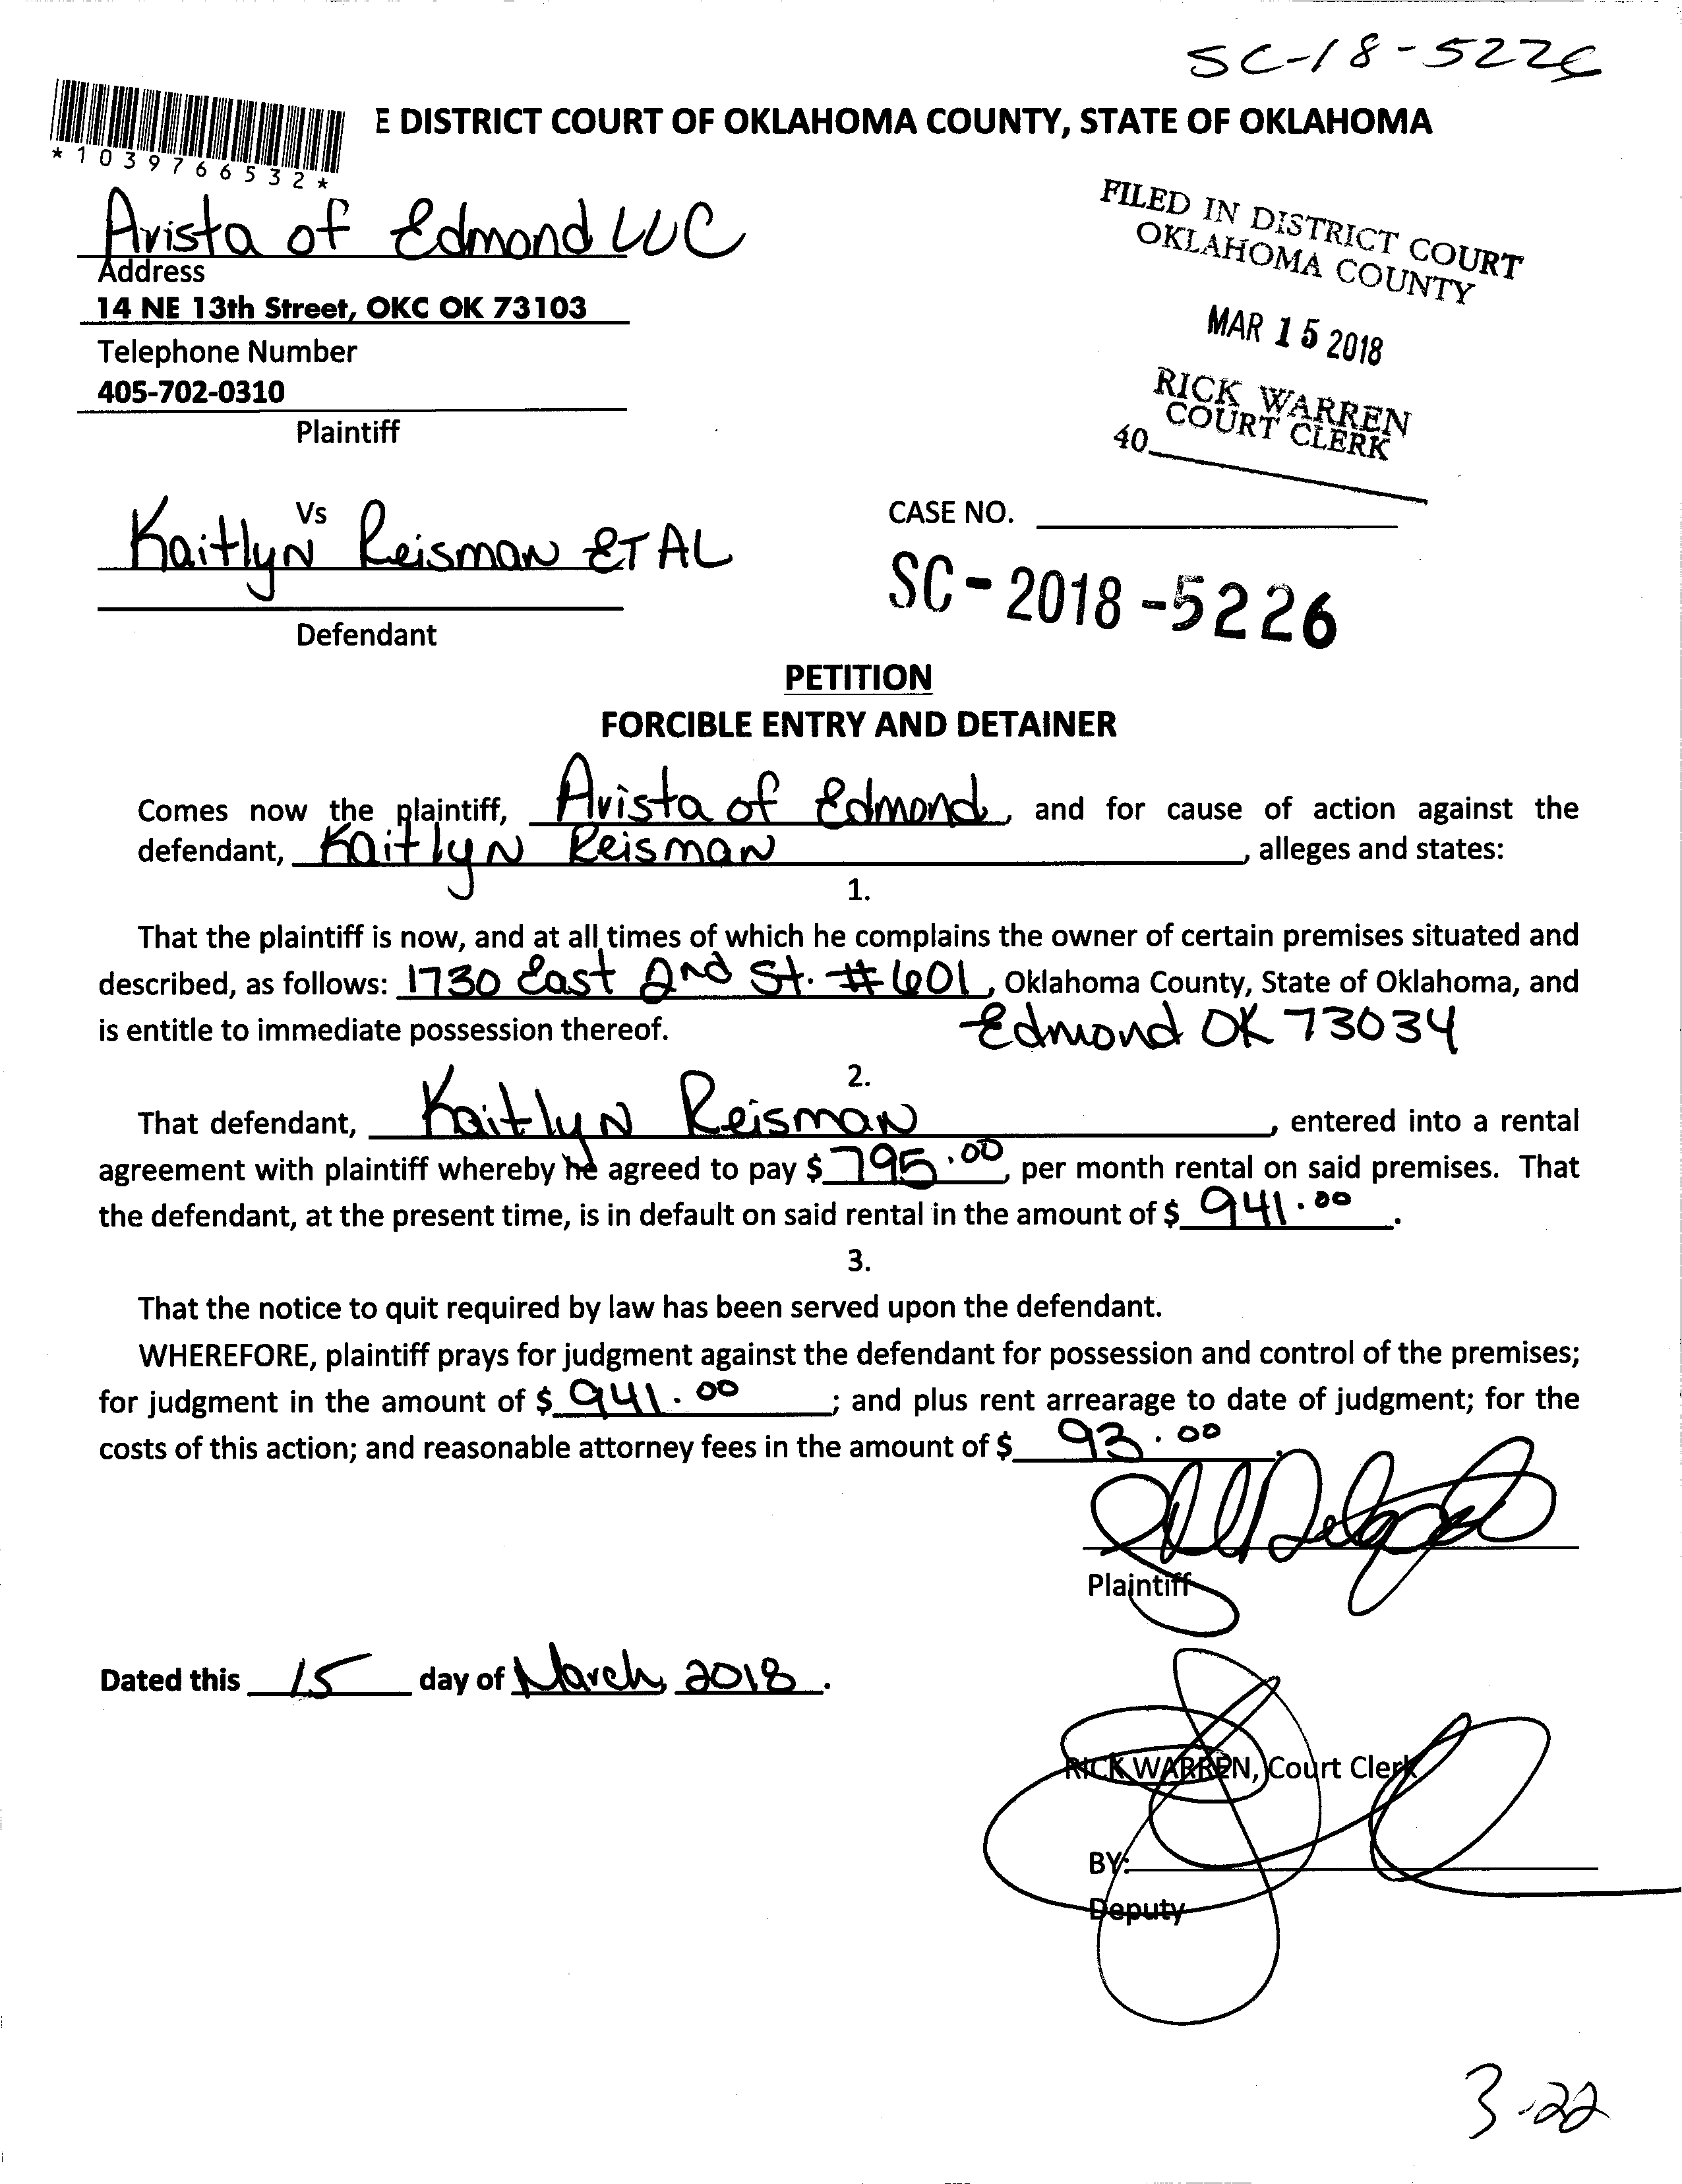 SC-18-5226
E DISTRICT COURT OF OKLAHOMA COUNTY, STATE OF OKLAHOMA
*1039766532*
Avista of Edmond LLC
Address
14 NE 13th Street, OKC OK 73103
Telephone Number
405-702-0310
Plaintiff
FILED IN DISTRICT COURT
OKLAHOMA COUNTY
MAR 15 2018
RICK WARREN
COURT CLERK
40
Vs
Kaitlyn Reisman ET AL
Defendant
CASE NO.
SC-2018-5226
PETITION
FORCIBLE ENTRY AND DETAINER
Comes now the plaintiff, Avista of Edmond, and for cause of action against the
defendant, Kaitlyn Reisman, alleges and states:
1.
That the plaintiff is now, and at all times of which he complains the owner of certain premises situated and
described, as follows: 1730 East 2nd St. #601, Oklahoma County, State of Oklahoma, and
is entitle to immediate possession thereof. Edmond OK 73034
2.
That defendant, Kaitlyn Reisman, entered into a rental
agreement with plaintiff whereby he agreed to pay $795.00, per month rental on said premises. That
the defendant, at the present time, is in default on said rental in the amount of $ 941.00.
3.
That the notice to quit required by law has been served upon the defendant.
WHEREFORE, plaintiff prays for judgment against the defendant for possession and control of the premises;
for judgment in the amount of $ 941.00; and plus rent arrearage to date of judgment; for the
costs of this action; and reasonable attorney fees in the amount of $ 93.00.
Plaintiff
Dated this 15 day of March, 2018.
RICK WARREN, Court Clerk
BY:
Deputy
3-22